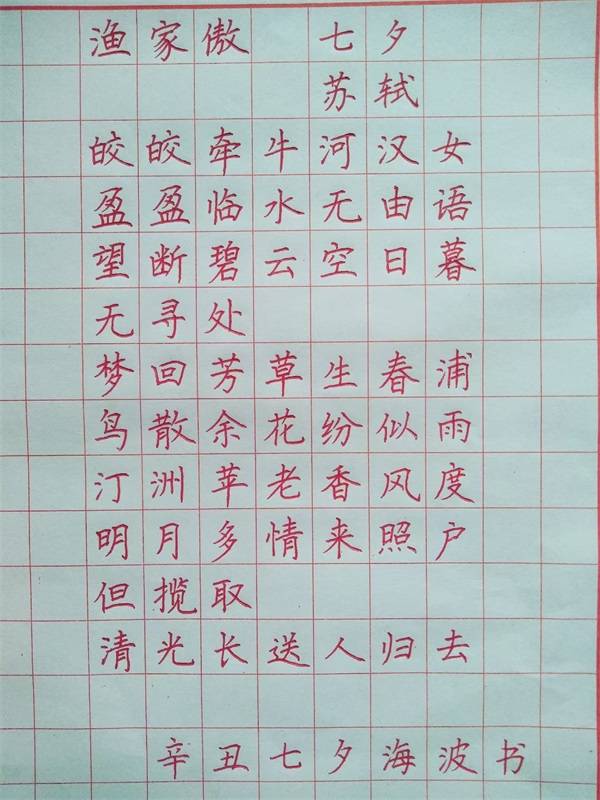 渔家傲 七夕
苏轼
皎皎牵牛河汉女
盈盈临水无由语
望断碧云空日暮
无寻处
梦回芳草生春浦
鸟散余花纷似雨
汀洲苹老香风度
明月多情来照户
但揽取
清光长送人归去
辛丑七夕海波书